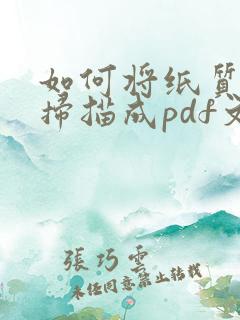 如何将纸质
扫描成pdf文
張巧雲
未经同意禁止转载